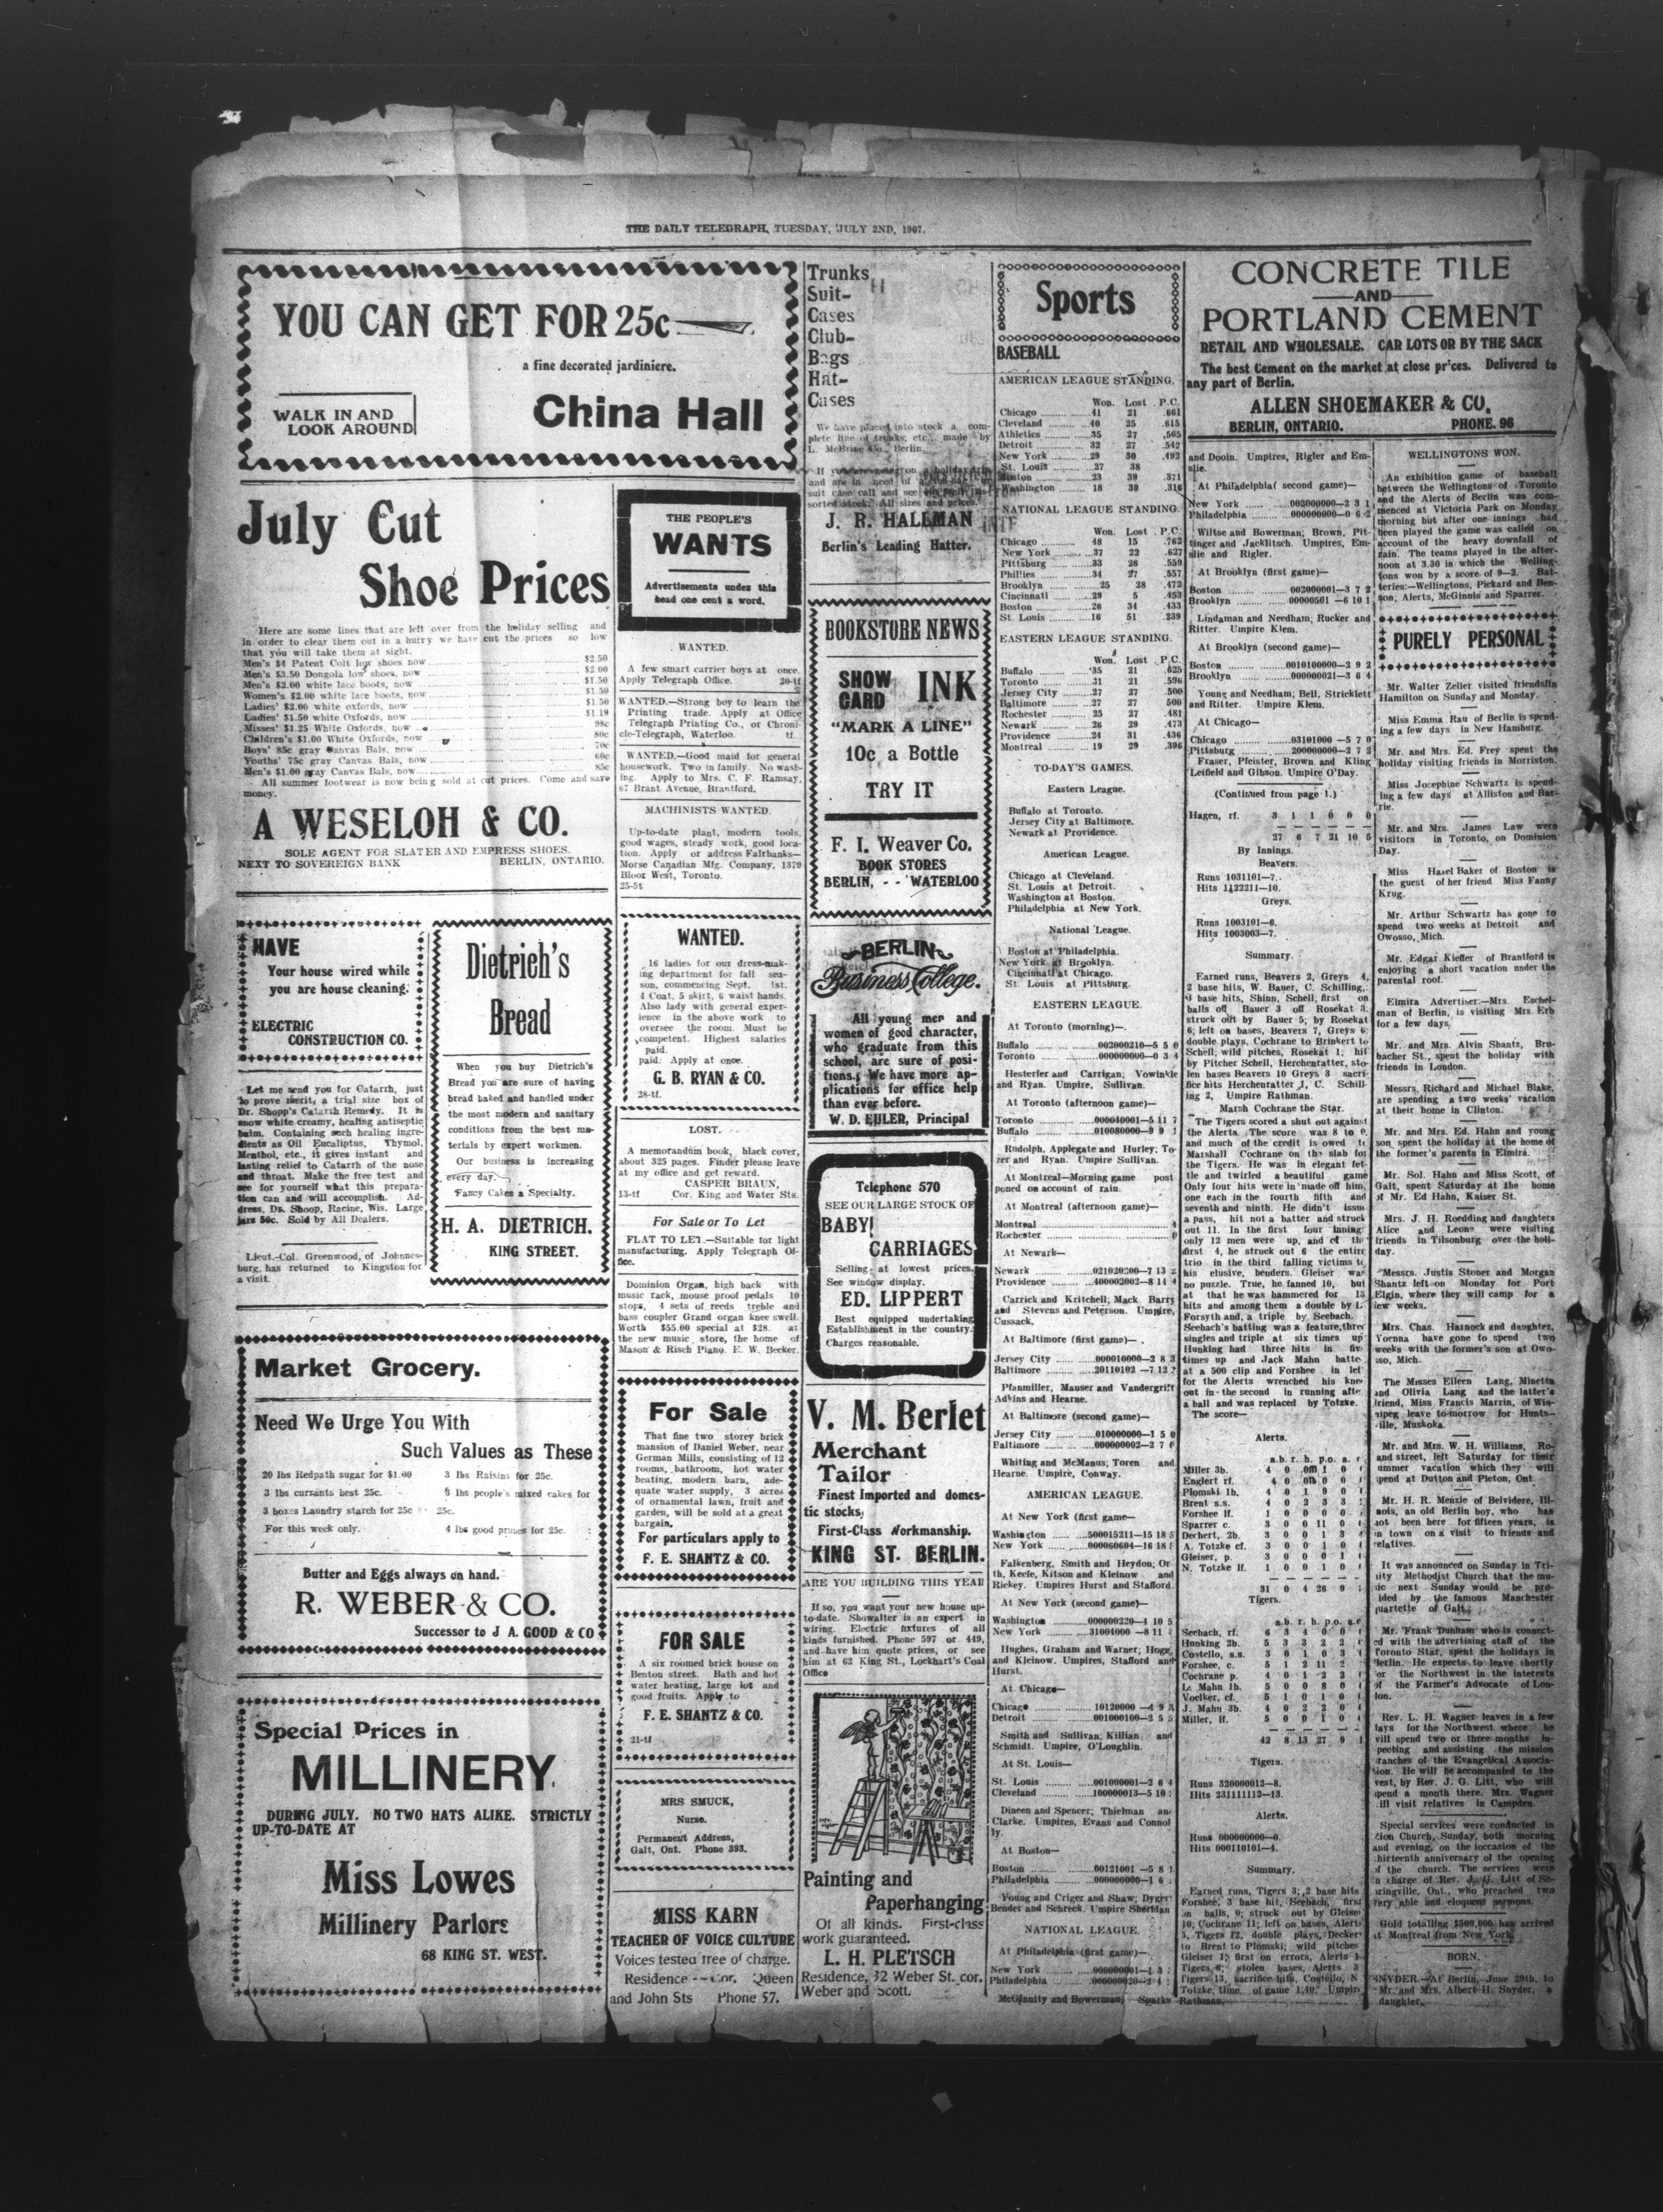 THE DAILY TELEGRAPH, TUESDAY, JULY 2ND, 1907.
YOU CAN GET FOR 25c
a fine decorated jardiniere.
WALK IN AND
LOOK AROUND
China Hall
July Cut
Shoe Prices
Here are some lines that are left over from the holiday selling and
in order to clear them out in a hurry we have cut the prices so low
that you will take them at sight.
Men's $4 Patent Colt low shoes now $2.50
Men's $3.50 Dongola low shoes, now $2.00
Men's $2.00 white lace boots, now $1.50
Women's $2.00 white lace boots, now $1.50
Ladies' $2.00 white oxfords, now $1.50
Ladies' $1.50 white Oxfords, now $1.19
Misses' $1.25 White Oxfords, now 98c
Children's $1.00 White Oxfords, now 80c
Boys' 85c gray Canvas Bals, now 70c
Youths' 75c gray Canvas Bals, now 60c
Men's $1.00 gray Canvas Bals, now 85c
All summer footwear is now being sold at cut prices. Come and save
money.
A WESELOH & CO.
SOLE AGENT FOR SLATER AND EMPRESS SHOES.
NEXT TO SOVEREIGN BANK BERLIN, ONTARIO.
HAVE
Your house wired while
you are house cleaning.
ELECTRIC
CONSTRUCTION CO.
Let me send you for Catarrh, just
to prove merit, a trial size box of
Dr. Shopp's Catarrh Remedy. It is
snow white creamy, healing antiseptic
balm. Containing such healing ingre-
dients as Oil Eucaliptus, Thymol,
Menthol, etc., it gives instant and
lasting relief to Catarrh of the nose
and throat. Make the free test and
see for yourself what this prepara-
tion can and will accomplish. Ad-
dress, Dr. Shoop, Racine, Wis. Large
jars 50c. Sold by All Dealers.
Lieut.-Col. Greenwood, of Johannes-
burg, has returned to Kingston for
a visit.
Dietrich's
Bread
When you buy Dietrich's
Bread you are sure of having
bread baked and handled under
the most modern and sanitary
conditions from the best ma-
terials by expert workmen.
Our business is increasing
every day.
Fancy Cakes a Specialty.
H. A. DIETRICH.
KING STREET.
Market Grocery.
Need We Urge You With
Such Values as These
20 lbs Redpath sugar for $1.00 3 lbs Raisins for 25c.
3 lbs currants best 25c. lbs people's mixed cakes for
3 boxes Laundry starch for 25c 25c.
For this week only. 4 lbs good prunes for 25c.
Butter and Eggs always on hand.
R. WEBER & CO.
Successor to J A. GOOD & CO
Special Prices in
MILLINERY
DURING JULY. NO TWO HATS ALIKE. STRICTLY
UP-TO-DATE AT
Miss Lowes
Millinery Parlors
68 KING ST. WEST.
THE PEOPLE'S
WANTS
Advertisements under this
head one cent a word.
WANTED.
A few smart carrier boys at once.
Apply Telegraph Office. 20-tf
WANTED.—Strong boy to learn the
Printing trade. Apply at Office
Telegraph Printing Co., or Chroni-
cle-Telegraph, Waterloo. tf.
WANTED.—Good maid for general
housework. Two in family. No wash-
ing. Apply to Mrs. C. F. Ramsay,
67 Brant Avenue, Brantford.
MACHINISTS WANTED.
Up-to-date plant, modern tools,
good wages, steady work, good loca-
tion. Apply or address Fairbanks—
Morse Canadian Mfg. Company, 1379
Bloor West, Toronto.
25-5t
WANTED.
16 ladies for our dress-mak-
ing department for fall sea-
son, commencing Sept. 1st.
4 Coat, 5 skirt, 6 waist hands.
Also lady with general exper-
ience in the above work to
oversee the room. Must be
competent. Highest salaries
paid.
paid. Apply at once.
G. B. RYAN & CO.
28-tf.
LOST.
A memorandum book, black cover,
about 325 pages. Finder please leave
at my office and get reward.
CASPER BRAUN,
13-tf Cor. King and Water Sts.
For Sale or To Let
FLAT TO LET.—Suitable for light
manufacturing. Apply Telegraph Of-
fice.
Dominion Organ, high back with
music rack, mouse proof pedals 10
stops, 4 sets of reeds treble and
bass coupler Grand organ knee swell.
Worth $55.00 special at $28. at
the new music store, the home of
Mason & Risch Piano. E. W. Becker.
For Sale
That fine two storey brick
mansion of Daniel Weber, near
German Mills, consisting of 12
rooms, bathroom, hot water
heating, modern barn, ade-
quate water supply, 3 acres
of ornamental lawn, fruit and
garden, will be sold at a great
bargain.
For particulars apply to
F. E. SHANTZ & CO.
FOR SALE
A six roomed brick house on
Benton street. Bath and hot
water heating, large lot and
good fruits. Apply to
F. E. SHANTZ & CO.
21-tf
MRS SMUCK,
Nurse.
Permanent Address,
Galt, Ont. Phone 393.
MISS KARN
TEACHER OF VOICE CULTURE
Voices tested free of charge.
Residence -- Cor. Queen
and John Sts Phone 57.
Trunks
Suit-
Cases
Club-
Bags
Hat-
Cases
We have placed into stock a com-
plete line of trunks, etc., made by
L. McBrine Co., Berlin.
If you are going on a holiday trip
and are in need of a
suit case call and see
sorted stock. All sizes and prices.
J. R. HALLMAN
Berlin's Leading Hatter.
BOOKSTORE NEWS
SHOW
CARD INK
"MARK A LINE"
10c a Bottle
TRY IT
F. I. Weaver Co.
BOOK STORES
BERLIN, - - WATERLOO
BERLIN
Business College.
All young men and
women of good character,
who graduate from this
school, are sure of posi-
tions. We have more ap-
plications for office help
than ever before.
W. D. EULER, Principal
Telephone 570
SEE OUR LARGE STOCK OF
BABY
CARRIAGES
Selling at lowest prices.
See window display.
ED. LIPPERT
Best equipped undertaking
Establishment in the country.
Charges reasonable.
V. M. Berlet
Merchant
Tailor
Finest Imported and domes-
tic stocks.
First-Class Workmanship.
KING ST. BERLIN.
ARE YOU BUILDING THIS YEAR
If so, you want your new house up-
to-date. Showalter is an expert in
wiring. Electric fixtures of all
kinds furnished. Phone 597 or 449,
and have him quote prices, or see
him at 62 King St., Lockhart's Coal
Office
Painting and
Paperhanging
Of all kinds. First-class
work guaranteed.
L. H. PLETSCH
Residence, 32 Weber St. cor.
Weber and Scott.
Sports
BASEBALL
AMERICAN LEAGUE STANDING.
Won. Lost P.C.
Chicago 41 21 .661
Cleveland 40 25 .615
Athletics 35 27 .565
Detroit 32 27 .542
New York 29 30 .492
St. Louis 27 38
Boston 23 39 .371
Washington 18 39 .316
NATIONAL LEAGUE STANDING.
Won. Lost P.C.
Chicago 48 15 .762
New York 37 22 .627
Pittsburg 33 26 .559
Phillies 34 27 .557
Brooklyn 25 28 .472
Cincinnati 29 5 .453
Boston 26 34 .433
St. Louis 16 51 .239
EASTERN LEAGUE STANDING.
Won. Lost P.C.
Buffalo 35 21 .625
Toronto 31 21 .596
Jersey City 27 27 .500
Baltimore 27 27 500
Rochester 25 27 .481
Newark 26 29 .473
Providence 24 31 .436
Montreal 19 29 .396
TO-DAY'S GAMES.
Eastern League.
Buffalo at Toronto.
Jersey City at Baltimore.
Newark at Providence.
American League.
Chicago at Cleveland.
St. Louis at Detroit.
Washington at Boston.
Philadelphia at New York.
National League.
Boston at Philadelphia.
New York at Brooklyn.
Cincinnati at Chicago.
St. Louis at Pittsburg.
EASTERN LEAGUE.
At Toronto (morning)—
Buffalo 002000210—5 5 0
Toronto 000000000—0 3 4
Hesterfer and Carrigan; Vowinkle
and Ryan. Umpire, Sullivan.
At Toronto (afternoon game)—
Toronto 000040001—5 11 7
Buffalo 010080000—9 9
Rudolph, Applegate and Hurley; To-
zer and Ryan. Umpire Sullivan.
At Montreal—Morning game post
poned on account of rain.
At Montreal (afternoon game)—
Montreal 4
Rochester 0
At Newark—
Newark 021020200—7 13 2
Providence 400002002—8 14 4
Carrick and Kritchell; Mack Barry
and Stevens and Peterson. Umpire,
Cussack.
At Baltimore (first game)—
Jersey City 000010000—2 8 3
Baltimore 20110102 —7 12
Pfanmiller, Mauser and Vandergrift
Adkins and Hearne.
At Baltimore (second game)—
Jersey City 010000000—1 5 0
Baltimore 000000002—2 7 6
Whiting and McManus; Toren and
Hearne. Umpire, Conway.
AMERICAN LEAGUE.
At New York (first game—
Washington 500015211—15 18 5
New York 000060604—16 18
Falkenberg, Smith and Heydon; Or-
th, Keefe, Kitson and Kleinow and
Rickey. Umpires Hurst and Stafford.
At New York (second game)—
Washington 000000220—4 10 5
New York 31004000 —8 11
Hughes, Graham and Warner; Hogg
and Kleinow. Umpires, Stafford and
Hurst.
At Chicago—
Chicago 10120000 —4 9 3
Detroit 001000100—2 5 5
Smith and Sullivan; Killian and
Schmidt. Umpire, O'Loughlin.
At St. Louis—
St. Louis 001000001—2 6 4
Cleveland 100000013—5 10
Dineen and Spencer; Thielman an
Clarke. Umpires, Evans and Connol
ly.
At Boston—
Boston 00121001 —5 8 1
Philadelphia 000000000—1 6
Young and Criger and Shaw; Dyger
Bender and Schreck. Umpire Sheridan
NATIONAL LEAGUE.
At Philadelphia (first game)—
New York 000000001—1 3
Philadelphia 000000020—2 4
McGinnity and Bowerman; Sparks
CONCRETE TILE
AND
PORTLAND CEMENT
RETAIL AND WHOLESALE. CAR LOTS OR BY THE SACK
The best Cement on the market at close prices. Delivered to
any part of Berlin.
ALLEN SHOEMAKER & CO.
BERLIN, ONTARIO. PHONE. 96
and Dooin. Umpires, Rigler and Em-
slie.
At Philadelphia( second game)—
New York 002000000—2 3 1
Philadelphia 000000000—0 6 2
Wiltse and Bowerman; Brown, Pit-
tinger and Jacklitsch. Umpires, Em-
slie and Rigler.
At Brooklyn (first game)—
Boston 002000001—3 7 2
Brooklyn 00000501 —6 10 1
Lindaman and Needham; Rucker and
Ritter. Umpire Klem.
At Brooklyn (second game)—
Boston 0010100000—2 9 2
Brooklyn 000000021—3 6 4
Young and Needham; Bell, Stricklett
and Ritter. Umpire Klem.
At Chicago—
Chicago 03101000 —5 7 0
Pittsburg 200000000—2 7 2
Fraser, Pfeister, Brown and Kling
Leifield and Gibson. Umpire O'Day.
(Continued from page 1.)
Hagen, rf. 3 1 1 0 0 0
27 6 7 21 10 5
By Innings.
Beavers.
Runs 1031101—7.
Hits 1122211—10.
Greys.
Runs 1003101—6.
Hits 1003003—7.
Summary.
Earned runs, Beavers 2, Greys 4,
2 base hits, W. Bauer, C. Schilling,
3 base hits, Shinn, Schell; first on
balls off Bauer 3 off Rosekat 3;
struck out by Bauer 5; by Rosekat
6; left on bases, Beavers 7, Greys 6;
double plays, Cochrane to Brinkert to
Schell; wild pitches, Rosekat 1; hit
by Pitcher Schell, Herchenratter, sto-
len bases Beavers 10 Greys 3 sacri-
fice hits Herchenratter 1, C. Schill-
ing 2, Umpire Rathman.
Marsh Cochrane the Star.
The Tigers scored a shut out against
the Alerts. The score was 8 to 0,
and much of the credit is owed to
Marshall Cochrane on the slab for
the Tigers. He was in elegant fet-
tle and twirled a beautiful game
Only four hits were in made off him,
one each in the fourth fifth and
seventh and ninth. He didn't issue
a pass, hit not a batter and struck
out 11. In the first four inning
only 12 men were up, and of the
first 4, he struck out 6 the entire
trio in the third falling victims to
his elusive, benders. Gleiser was
no puzzle. True, he fanned 10, but
at that he was hammered for 13
hits and among them a double by L.
Forsyth and, a triple by Seebach.
Seebach's batting was a feature, three
singles and triple at six times up
Hunking had three hits in five
times up and Jack Mahn batte
at a 500 clip and Forshee in lef
for the Alerts wrenched his knee
out in the second in running after
a ball and was replaced by Totzke.
The score—
Alerts.
a.b. r. h. p.o. a. e
Miller 3b. 4 0 1 0
Englert rf. 4 0 0 0
Plomski 1b. 4 0 1 9 0
Brent s.s. 4 0 2 3 3
Forshee lf. 1 0 0 0 0
Sparrer c. 3 0 0 11 0
Dechert, 2b. 3 0 0 1 3
A. Totzke cf. 3 0 0 1 0
Gleiser, p. 3 0 0 0 1
N. Totzke lf. 1 0 0 1 0
31 0 4 26 9
Tigers.
a.b. r. h. p.o. a.e
Seebach, rf. 6 3 4 0 0
Hunking 2b. 5 3 3 2 2
Costello, s.s. 3 0 1 0 3
Forshee, c. 5 1 2 11 2
Cochrane p. 4 0 1 2 2
L. Mahn 1b. 5 0 0 8 0
Voelker, cf. 5 1 0 1 0
J. Mahn 3b. 4 0 2 2 0
Miller, lf. 5 0 0 1 0
42 8 13 27 9 1
Tigers.
Runs 320000012—8.
Hits 231111112—13.
Alerts.
Runs 000000000—0.
Hits 000110101—4.
Summary.
Earned runs, Tigers 3; 2 base hits
Forshee, 3 base hit, Seebach, first
on balls, 0; struck out by Gleiser
10; Cochrane 11; left on bases, Alerts
5, Tigers 12, double plays, Decker
to Brent to Plomski; wild pitches
Gleiser 1; first on errors, Alerts 1
Tigers, 6; stolen bases, Alerts 3
Tigers 13, sacrifice hits, Costello, N
Totzke, time, of game 1.40. Umpire
Rathman.
WELLINGTONS WON.
An exhibition game of baseball
between the Wellingtons of Toronto
and the Alerts of Berlin was com-
menced at Victoria Park on Monday
morning but after one innings had
been played the game was called on
account of the heavy downfall of
rain. The teams played in the after-
noon at 3.30 in which the Welling-
tons won by a score of 9—2. Bat-
teries:—Wellingtons, Pickard and Ben-
son; Alerts, McGinnis and Sparrer.
PURELY PERSONAL
Mr. Walter Zeller visited friends in
Hamilton on Sunday and Monday.
Miss Emma Rau of Berlin is spend-
ing a few days in New Hamburg.
Mr. and Mrs. Ed. Frey spent the
holiday visiting friends in Morriston.
Miss Josephine Schwartz is spend-
ing a few days at Alliston and Bar-
rie.
Mr. and Mrs. James Law were
visitors in Toronto, on Dominion
Day.
Miss Hazel Baker of Boston is
the guest of her friend Miss Fanny
Krug.
Mr. Arthur Schwartz has gone to
spend two weeks at Detroit and
Owosso, Mich.
Mr. Edgar Kieffer of Brantford is
enjoying a short vacation under the
parental roof.
Elmira Advertiser:—Mrs. Eschel-
man of Berlin, is visiting Mrs. Erb
for a few days.
Mr. and Mrs. Alvin Shantz, Bru-
bacher St., spent the holiday with
friends in London.
Messrs. Richard and Michael Blake,
are spending a two weeks' vacation
at their home in Clinton.
Mr. and Mrs. Ed. Hahn and young
son spent the holiday at the home of
the former's parents in Elmira.
Mr. Sol. Hahn and Miss Scott, of
Galt, spent Saturday at the home
of Mr. Ed Hahn, Kaiser St.
Mrs. J. H. Roedding and daughters
Alice and Leone were visiting
friends in Tilsonburg over the holi-
day.
Messrs. Justis Stoner and Morgan
Shantz left on Monday for Port
Elgin, where they will camp for a
few weeks.
Mrs. Chas. Harnock and daughter,
Voenna have gone to spend two
weeks with the former's son at Owo-
sso, Mich.
The Misses Eileen Lang, Minetta
and Olivia Lang and the latter's
friend, Miss Francis Marrin, of Win-
nipeg leave to-morrow for Hunts-
ville, Muskoka.
Mr. and Mrs. W. H. Williams, Ro-
and street, left Saturday for their
summer vacation which they will
spend at Dutton and Picton, Ont.
Mr. H. R. Menzie of Belvidere, Ill-
inois, an old Berlin boy, who has
not been here for fifteen years, is
in town on a visit to friends and
relatives.
It was announced on Sunday in Tri-
nity Methodist Church that the mu-
sic next Sunday would be pro-
vided by the famous Manchester
quartette of Galt.
Mr. Frank Dunham who is connect-
ed with the advertising staff of the
Toronto Star, spent the holidays in
Berlin. He expects to leave shortly
for the Northwest in the interests
of the Farmer's Advocate of Lon-
don.
Rev. L. H. Wagner leaves in a few
days for the Northwest where he
will spend two or three months in-
specting and assisting the mission
branches of the Evangelical Associa-
tion. He will be accompanied to the
west, by Rev. J. G. Litt, who will
spend a month there. Mrs. Wagner
will visit relatives in Campden.
Special services were conducted in
Zion Church, Sunday, both morning
and evening, on the occasion of the
thirteenth anniversary of the opening
of the church. The services were
in charge of Rev. J. G. Litt of Se-
bringville, Ont., who preached two
very able and eloquent sermons.
Gold totalling $500,000 has arrived
at Montreal from New York.
BORN.
SNYDER.—At Berlin, June 29th, to
Mr. and Mrs. Albert H. Snyder, a
daughter.